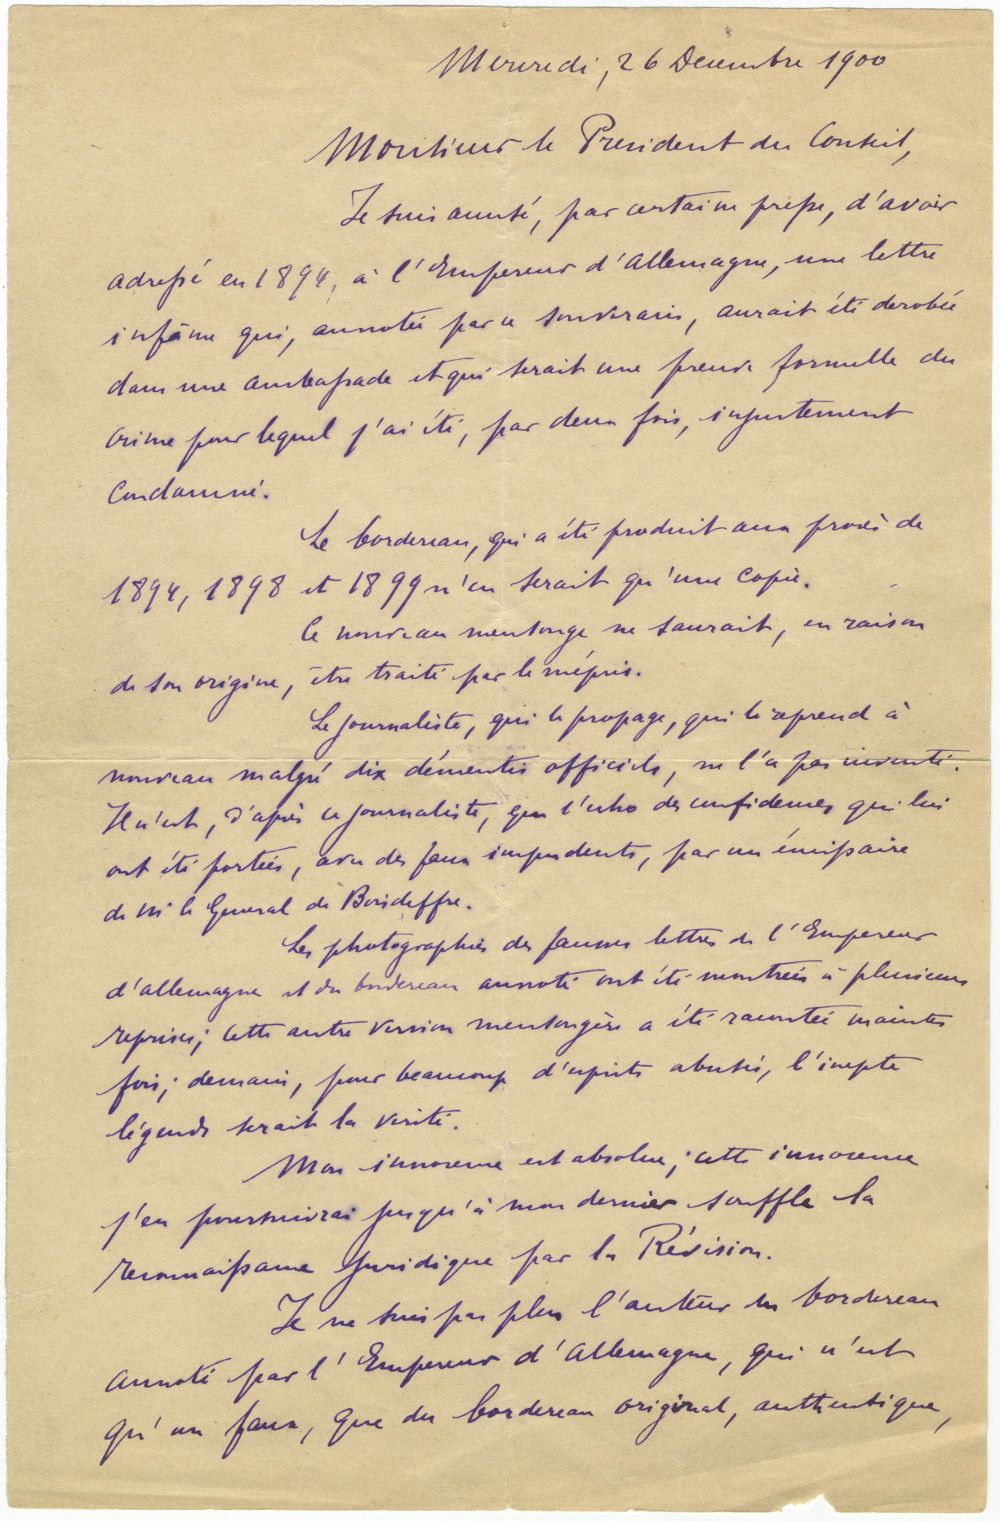 Mercredi, 26 Decembre 1900
Monsieur le President du Conseil,
Je suis accusé, par certaine presse, d'avoir
adressé en 1894, à l'Empereur d'Allemagne, une lettre
infâme qui, annotée par ce souverain, aurait été derobée
dans une ambassade et qui serait une preuve formelle du
crime pour lequel j'ai été, par deux fois, injustement
condamné.
Le bordereau, qui a été produit aux procès de
1894, 1898 et 1899 n'en serait qu'une copie.
Ce nouveau mensonge ne saurait, en raison
de son origine, être traité par le mépris.
Le journaliste, qui le propage, qui le reprend à
nouveau malgré dix démentis officiels, ne l'a pas inventé.
Il n'est, d'après ce journaliste, que l'echo de confidences qui lui
ont été portées, avec des faux impudents, par un émissaire
de M le General de Boisdeffre.
Les photographies des fausses lettres de l'Empereur
d'Allemagne et du bordereau annoté ont été montrées à plusieurs
reprises; cette autre version mensongère a été racontée maintes
fois; demain, pour beaucoup d'esprits abusés, l'inepte
légende serait la vérité.
Mon innocence est absolue; cette innocence
j'en poursuivrai jusqu'à mon dernier souffle la
reconnaissance juridique par la Révision.
Je ne suis pas plus l'auteur du bordereau
annoté par l'Empereur d'Allemagne, qui n'est
qu'un faux, que du bordereau original, authentique,